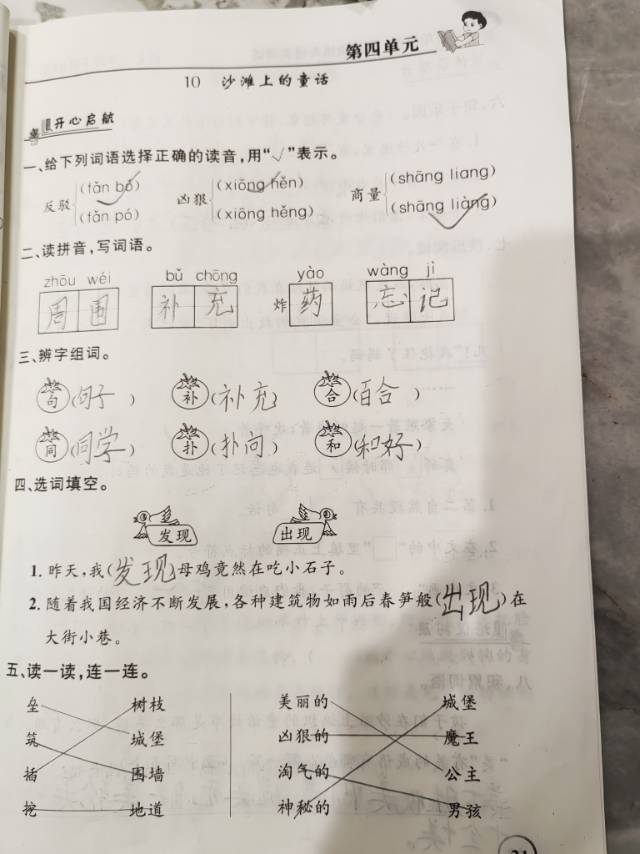 第四单元
10 沙滩上的童话
开心启航
一、给下列词语选择正确的读音,用“√”表示。
反驳 (fǎn bó) √ (fǎn pó) 凶狠 (xiōng hěn) √ (xiōng hěng) 商量 (shāng liang) (shāng liàng) √
二、读拼音,写词语。
zhōu wéi bǔ chōng yào wàng jì
周围 补充 炸药 忘记
三、辨字组词。
句(句子) 补(补充) 合(百合)
同(同学) 扑(扑向) 和(和好)
四、选词填空。
发现 出现
1. 昨天,我(发现)母鸡竟然在吃小石子。
2. 随着我国经济不断发展,各种建筑物如雨后春笋般(出现)在
大街小巷。
五、读一读,连一连。
垒 树枝 美丽的 城堡
筑 城堡 凶狠的 魔王
插 围墙 淘气的 公主
挖 地道 神秘的 男孩